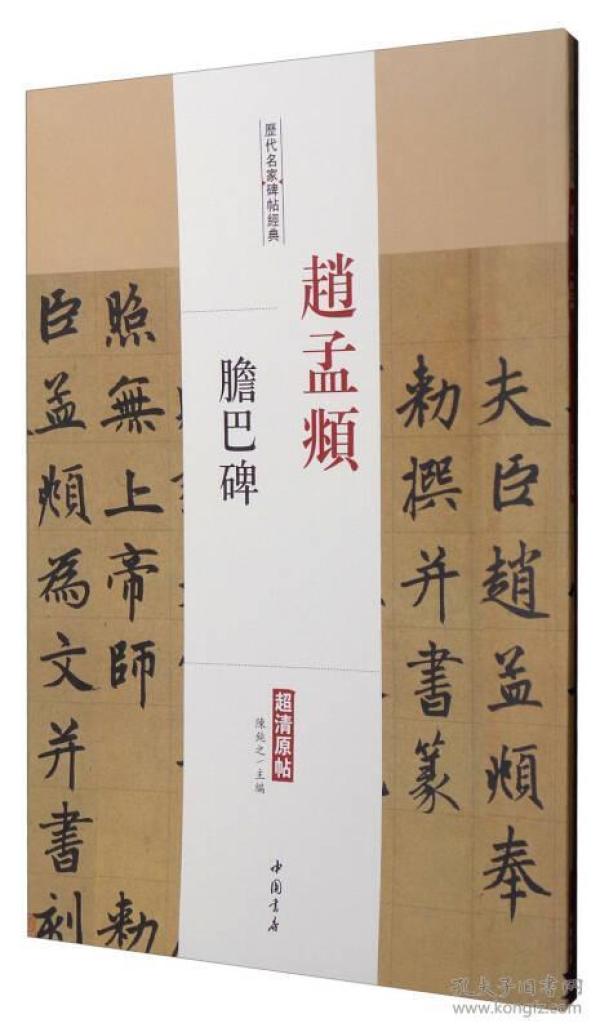 歷代名家碑帖經典
趙孟頫
膽巴碑
超清原帖
陳純之/主編
中国書店
夫臣趙孟頫奉
勅撰并書篆
照無上帝師
勅
臣孟頫為文并書刻
孔夫子旧书网
www.kongfz.com